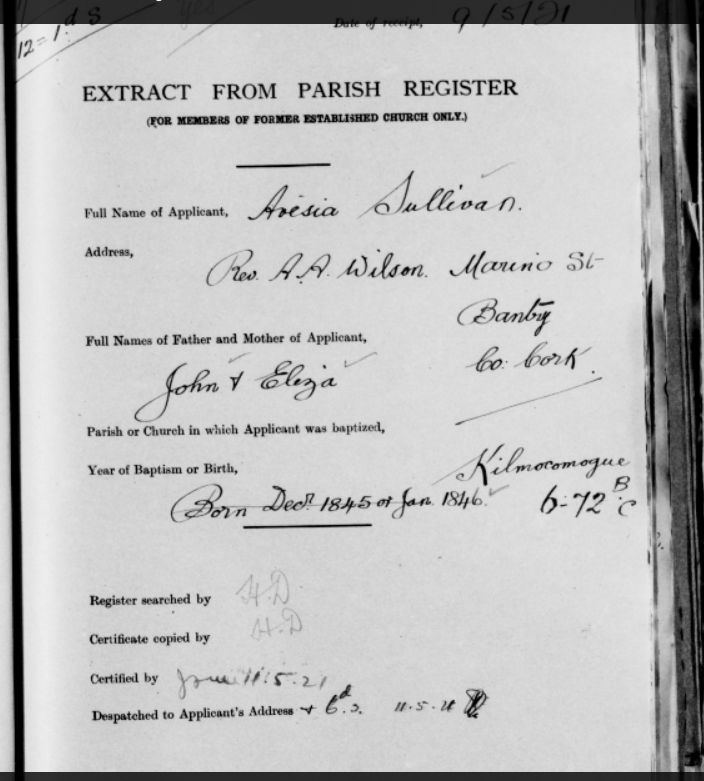 12 = 1.d S
yes
Date of receipt, 9/5/21
EXTRACT FROM PARISH REGISTER
(FOR MEMBERS OF FORMER ESTABLISHED CHURCH ONLY.)
Full Name of Applicant, Avesia Sullivan.
Address,
Rev. A.A. Wilson. Marino St
Bantry
Full Names of Father and Mother of Applicant,
Co. Cork.
John & Eliza
Parish or Church in which Applicant was baptized,
Kilmocomogue
Year of Baptism or Birth,
Born Decr. 1845 or Jan. 1846. 6-72 B.C
Register searched by H.D
Certificate copied by H.D
Certified by 11.5.21
Despatched to Applicant's Address + 6d s. 11.5.21